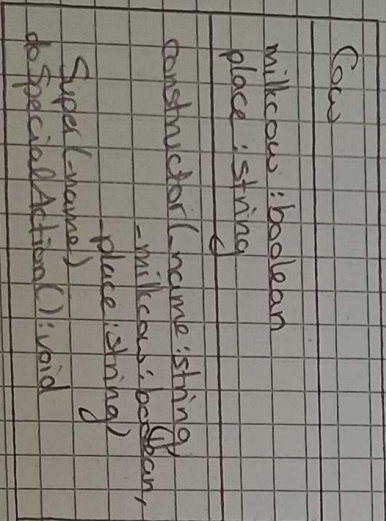 Cow
milkcow : boolean
place : string
constructor(_name : string
_milkcow : boolean,
_place : string)
Super(_name)
doSpecialAction() : void